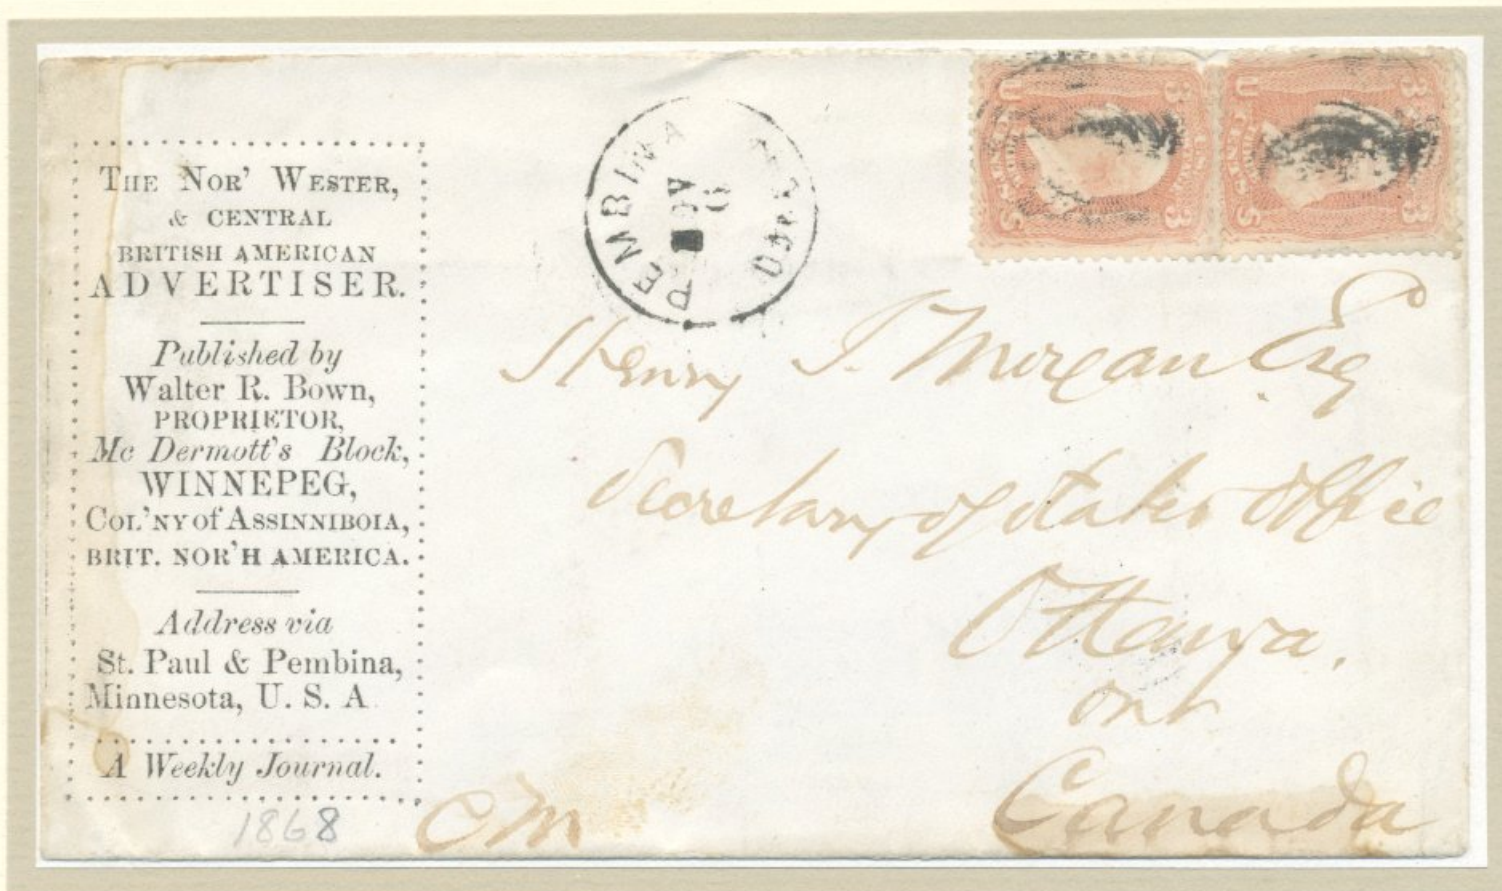 THE NOR' WESTER,
& CENTRAL
BRITISH AMERICAN
ADVERTISER.
Published by
Walter R. Bown,
PROPRIETOR,
Mc Dermott's Block,
WINNEPEG,
COL'NY of ASSINNIBOIA,
BRIT. NOR'H AMERICA.
Address via
St. Paul & Pembina,
Minnesota, U. S. A
A Weekly Journal.
1868
PEMBINA
NOV
U 3 CENTS 3
U 3 CENTS 3
Henry J. Morgan Esq
Secretary of States Office
Ottawa.
Ont
Canada
CM